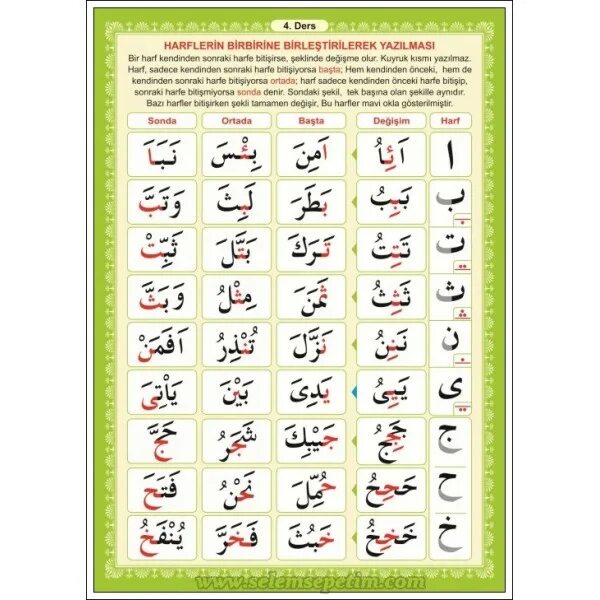 4. Ders
HARFLERİN BİRBİRİNE BİRLEŞTİRİLEREK YAZILMASI
Bir harf kendinden sonraki harfe bitişirse, şeklinde değişme olur. Kuyruk kısmı yazılmaz.
Harf, sadece kendinden sonraki harfe bitişiyorsa başta; Hem kendinden önceki, hem de
kendinden sonraki harfe bitişiyorsa ortada; harf sadece kendinden önceki harfe bitişip,
sonraki harfe bitişmiyorsa sonda denir. Sondaki şekil, tek başına olan şekille aynıdır.
Bazı harfler bitişirken şekli tamamen değişir, Bu harfler mavi okla gösterilmiştir.
Sonda Ortada Başta Değişim Harf
ا اَئِاُ اٰمِنَ بِئْسَ نَبَاَ
ب بَبِبُ بَطَرَ لَبِثَ وَتَبَّ
ت تَتِتُ تَرَكَ بَتَّلَ ثَبِّتْ
ث ثَثِثُ ثَمَنَ مِثْلُ وَبَثَّ
ن نَنِنُ نَزَّلَ تُنْذِرُ اَفَمَنْ
ى يَيِىُ يَدِىَ بَيْنَ يَاْتِى
ج جَجِجُ جَيْبِكَ شَجَرُ حَجَّ
ح حَحِحُ حُمِّلَ نَحْنُ فَتَحَ
خ خَخِخُ خَبُثَ فَخَرَّ يُنْفَخُ
www.selemsepetim.com